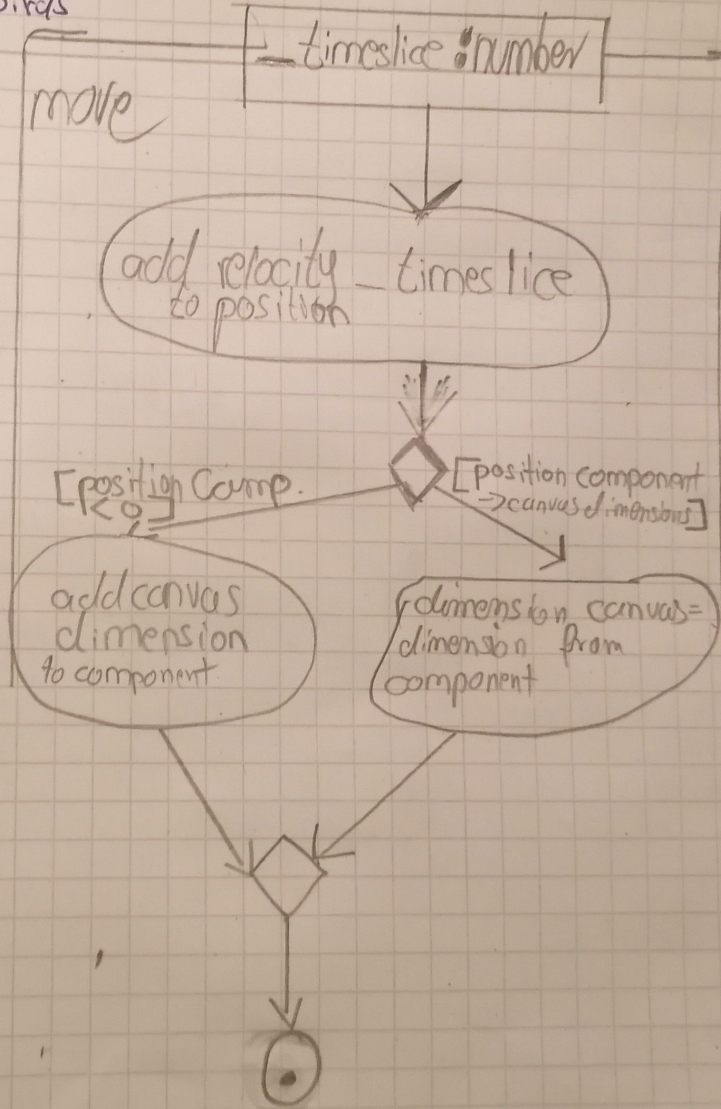 birds
_timeslice :number
move
add velocity _timeslice
to position
[position Comp.
< 0]
[position component
->canvas dimensions]
add canvas
dimension
to component
dimension canvas=
dimension from
component